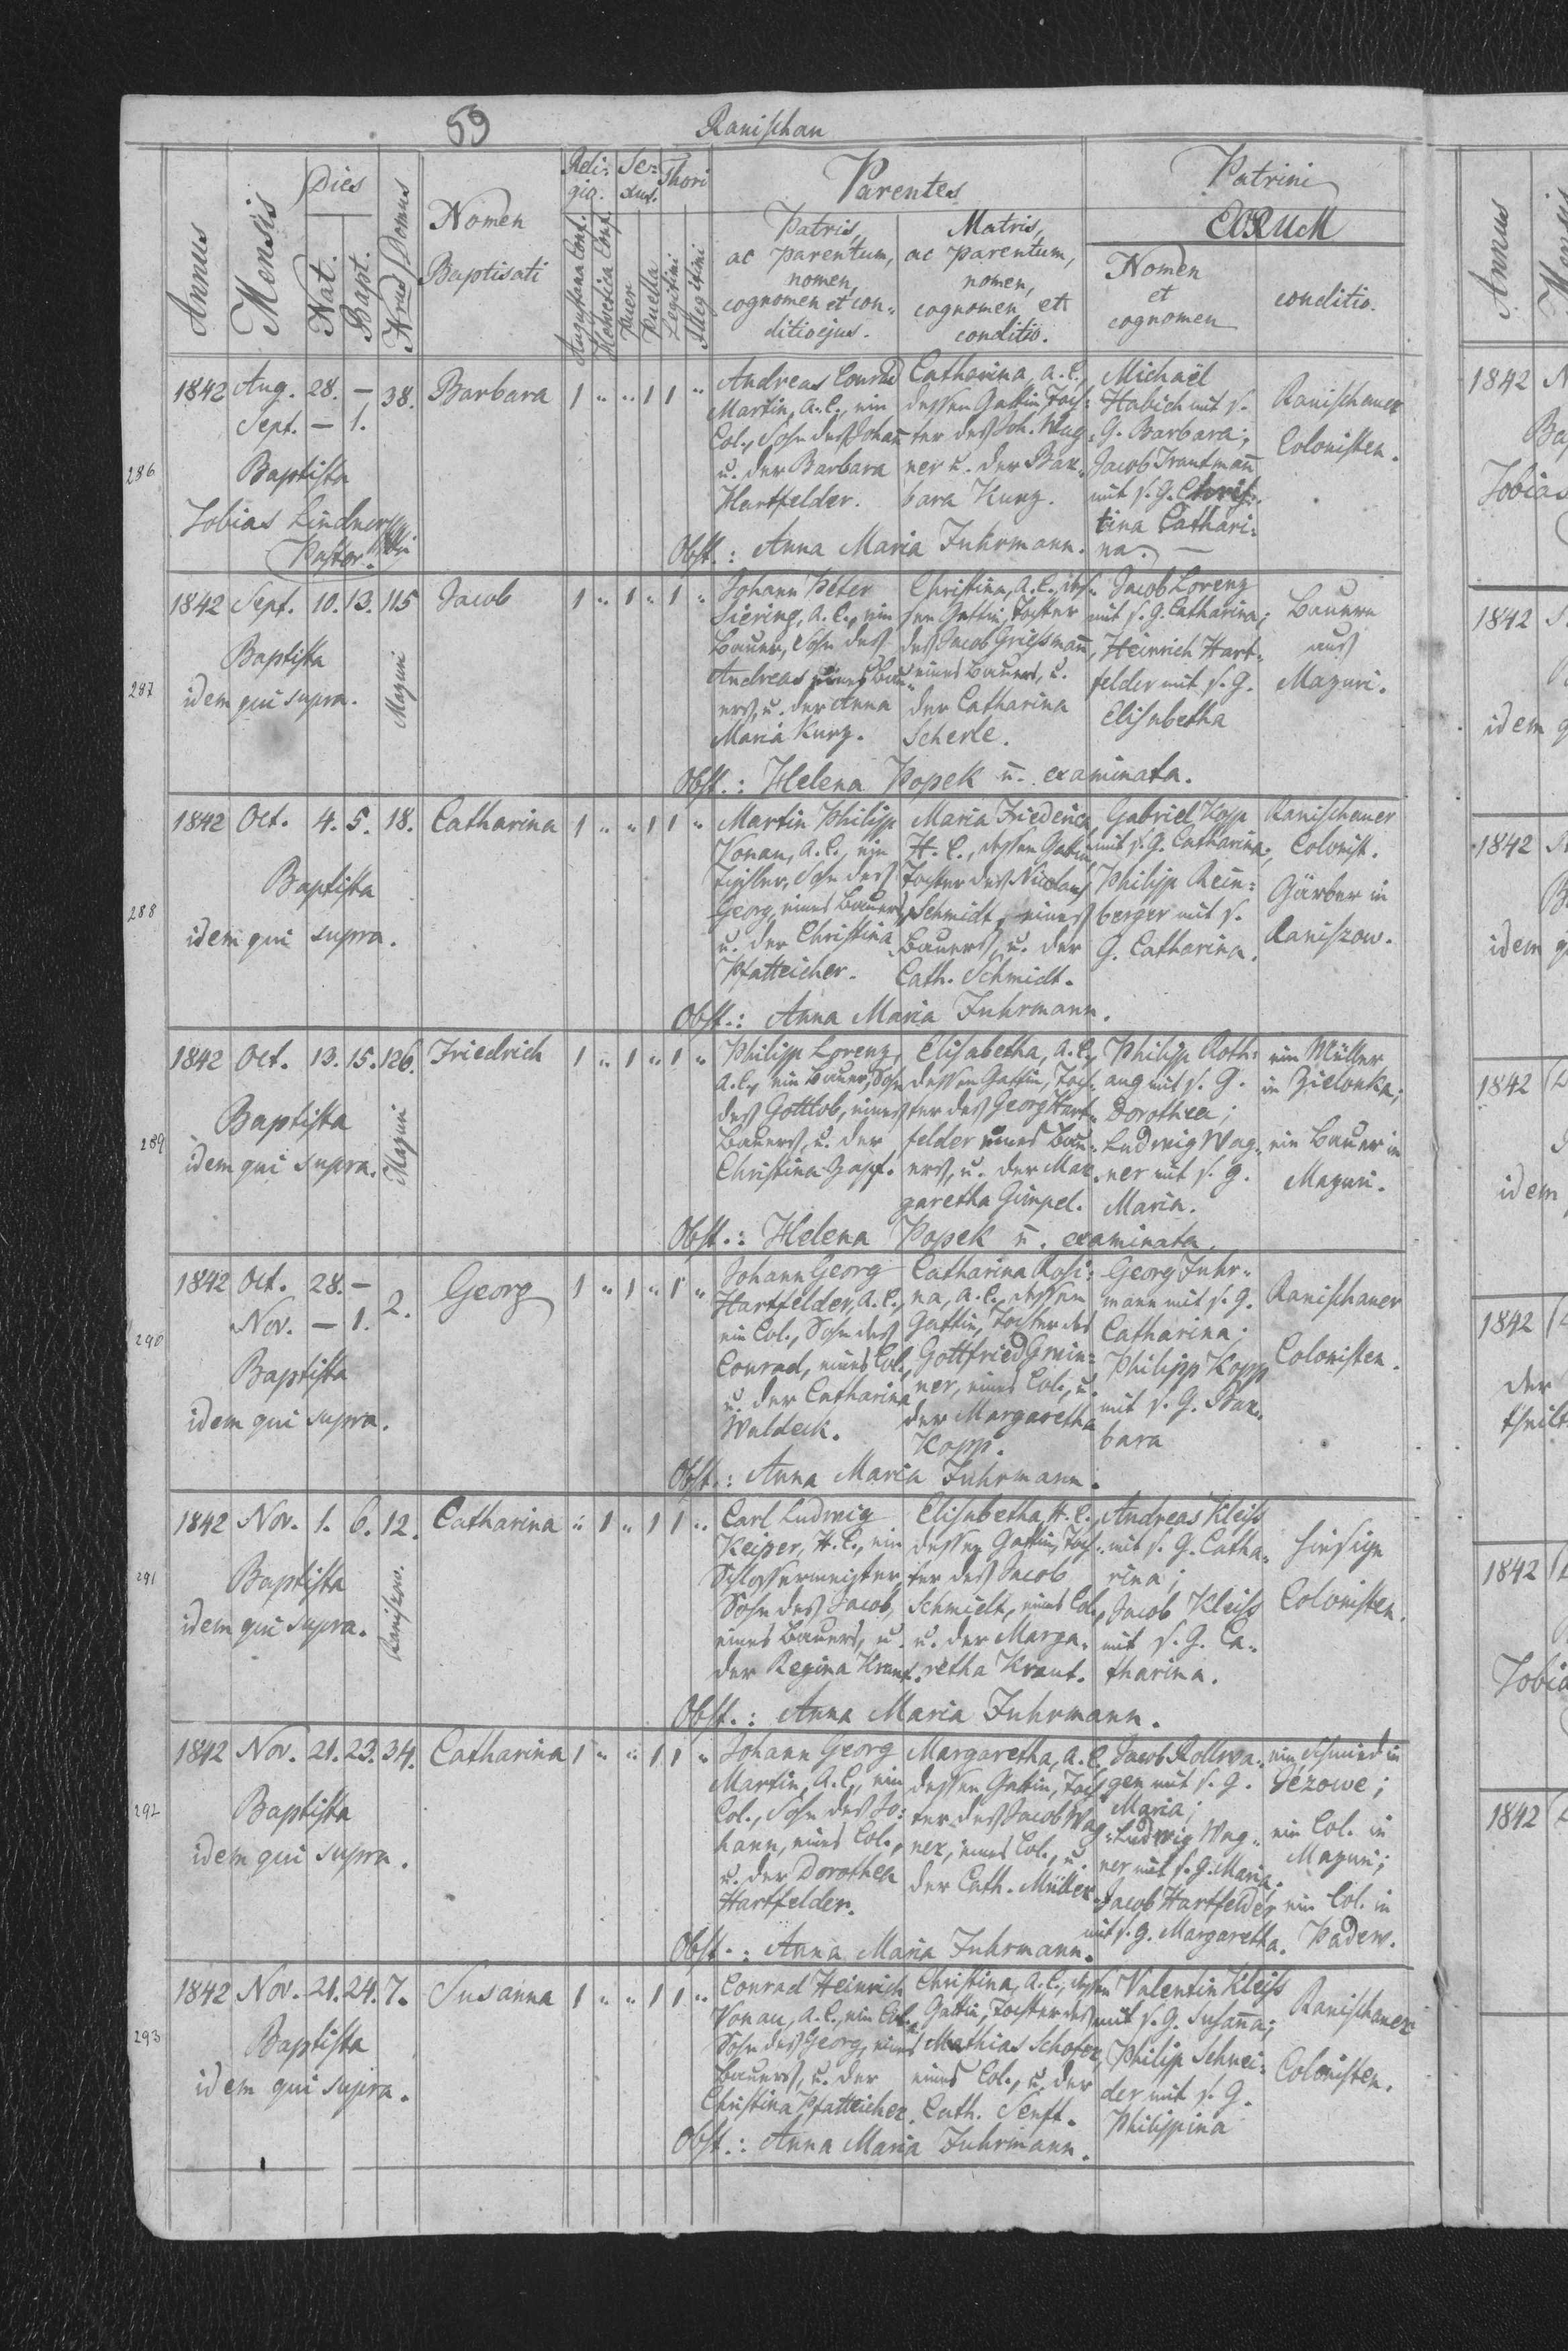 59 Ranischau
Annus Mensis Dies Nat. Bapt. Nrus Domus Nomen Baptisati Reli=gio. Augustana Conf. Helvetica Conf. Se=xus. Puer Puella Thori Legitimi Illegitimi Parentes Patrini
EORUM
Patris, ac parentum, nomen, cognomen et con=ditio ejus.
Matris, ac parentum, nomen, cognomen et conditio.
Nomen et cognomen
conditio.
286
1842 Aug. 28. — 38. Barbara 1 " " 1 1 "
Sept. — 1.
Baptista
Tobias Lindner
Pastor.
Andreas Conrad
Martin, A.C., ein
Col., Sohn deß Johañ
u. der Barbara
Hartfelder.
Catharina, A.C.,
dessen Gattin, Toch=
ter deß Joh. Wag=
ner u. der Bar=
bara Kunz.
Michaël
Habich mit s.
G. Barbara;
Jacob Trautmañ
mit s. G. Chris=
tina Cathari=
na. —
Ranischauer
Colonisten.
Obst.: Anna Maria Fuhrmann.
287
1842 Sept. 10. 13. 115 Jacob 1 " 1 " 1 "
Baptista
idem qui supra.
Mazuri
Johann Peter
Siering, A.C., ein
Bauer, Sohn deß
Andreas eines Bau=
ers, u. der Anna
Maria Kunz.
Christina, A.C., des=
sen Gattin, Tochter
deß Jacob Grießmañ,
eines Bauers, u.
der Catharina
Scherle.
Jacob Lorenz
mit s. G. Catharina;
Heinrich Hart=
felder mit s. G.
Elisabetha
Bauern
aus
Mazuri.
Obst.: Helena Popek ū. examinata.
288
1842 Oct. 4. 5. 18. Catharina 1 " " 1 1 "
Baptista
idem qui supra.
Martin Philipp
Vonau, A.C., ein
Tischler, Sohn deß
Georg, eines Bauers,
u. der Christina
Pfatteicher.
Maria Friederica
H.C., dessen Gattin
Tochter des Nicolaus
Schmidt, eines
Bauers, u. der
Cath. Schmidt.
Gabriel Kopp
mit s. G. Catharina;
Philipp Rein=
berger mit s.
G. Catharina.
Ranischauer
Colonist.
Gärber in
Raniszow.
Obst.: Anna Maria Fuhrmann.
289
1842 Oct. 13. 15. 126. Friedrich 1 " 1 " 1 "
Baptista
idem qui supra.
Mazuri
Philipp Lorenz,
A.C., ein Bauer, Sohn
deß Gottlob, eines
Bauers, u. der
Christina Zapf.
Elisabetha, A.C.,
dessen Gattin, Toch=
ter deß Georg Hart=
felder eines Bau=
ers, u. der Mar=
garetha Gimpel.
Philipp Roth=
aug mit s. G.
Dorothea;
Ludwig Wag=
ner mit s. G.
Maria.
ein Müller
in Zielonka;
ein Bauer in
Mazuri.
Obst.: Helena Popek ū. examinata.
290
1842 Oct. 28. — 2. Georg 1 " 1 " 1 "
Nov. — 1.
Baptista
idem qui supra.
Johann Georg
Hartfelder, A.C.,
ein Col., Sohn deß
Conrad, eines Col.,
u. der Catharina
Waldeck.
Catharina Rosi=
na, A.C., dessen
Gattin, Tochter des
Gottfried Grein=
ner, eines Col., u.
der Margaretha
Kopp.
Georg Fuhr=
mann mit s. G.
Catharina;
Philipp Kopp
mit s. G. Bar=
bara
Ranischauer
Colonisten.
Obst.: Anna Maria Fuhrmann.
291
1842 Nov. 1. 6. 12. Catharina " 1 " 1 1 "
Baptista
idem qui supra.
Raniszow.
Carl Ludwig
Keiper, H.C., ein
Schlossermeister,
Sohn deß Jacob,
eines Bauers, u.
der Regina Kraut.
Elisabetha, H.C.,
dessen Gattin, Toch=
ter deß Jacob
Schmidt, eines Col.,
u. der Marga=
retha Kraut.
Andreas Kleiß
mit s. G. Catha=
rina;
Jacob Kleiß
mit s. G. Ca=
tharina.
hiesige
Colonisten.
Obst.: Anna Maria Fuhrmann.
292
1842 Nov. 21. 23. 34. Catharina 1 " " 1 1 "
Baptista
idem qui supra.
Johann Georg
Martin, A.C., ein
Col., Sohn deß Jo=
hann, eines Col.,
u. der Dorothea
Hartfelder.
Margaretha, A.C.
dessen Gattin, Toch=
ter deß Jacob Wag=
ner, eines Col., u.
der Cath. Müller.
Jacob Rollwa=
gen mit s. G.
Maria;
Ludwig Wag=
ner mit s. G. Maria.
Jacob Hartfelder
mit s. G. Margaretha.
ein Schmied in
Jezowe;
ein Col. in
Mazuri;
ein Col. in
Padew.
Obst.: Anna Maria Fuhrmann.
293
1842 Nov. 21. 24. 7. Susanna 1 " " 1 1 "
Baptista
idem qui supra.
Conrad Heinrich
Vonau, A.C., ein Col.,
Sohn deß Georg, eines
Bauers, u. der
Christina Pfatteicher.
Christina, A.C., dessen
Gattin, Tochter des
Mathias Schober,
eines Col., u. der
Cath. Senft.
Valentin Kleiß
mit s. G. Susaña;
Philip Schnei=
der mit s. G.
Philippina
Ranischauer
Colonisten.
Obst.: Anna Maria Fuhrmann.
Annus
1842
Tobias
1842
idem
1842
idem
1842
idem
1842
der
1842
1842